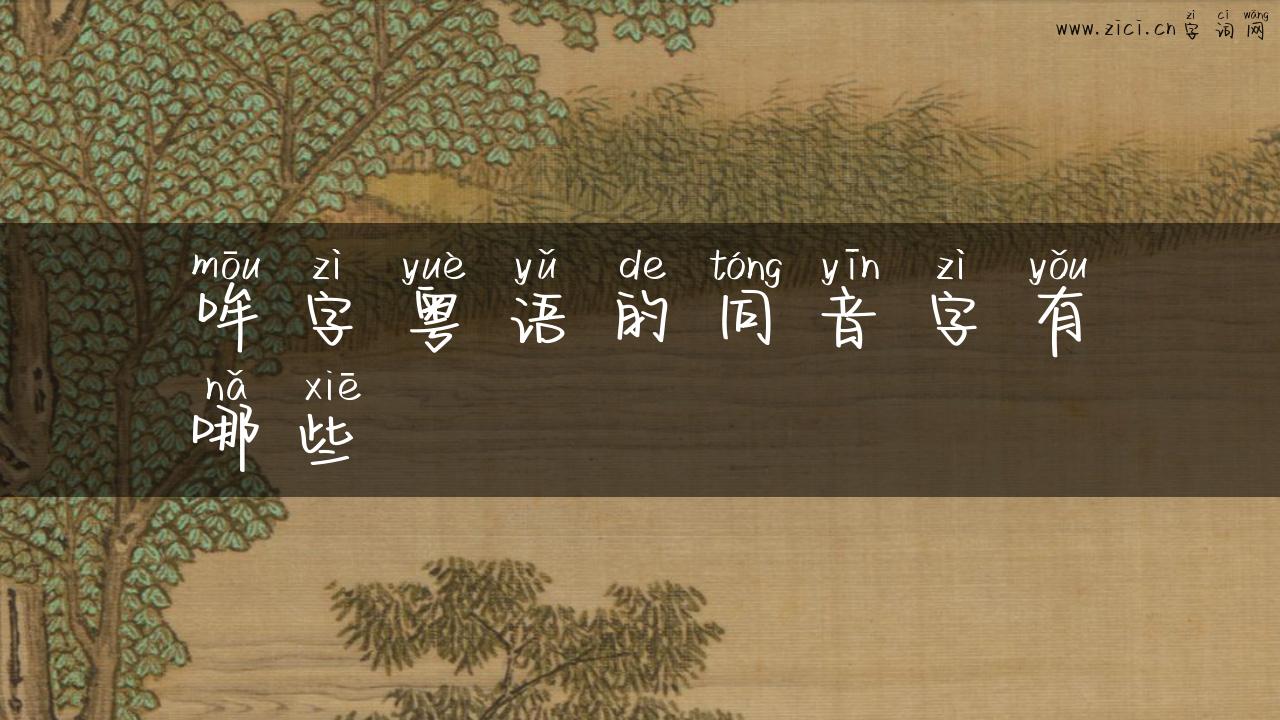 zì cí wǎng
www.zici.cn 字词网
mōu zì yuè yǔ de tóng yīn zì yǒu
哞字粤语的同音字有
nǎ xiē
哪些